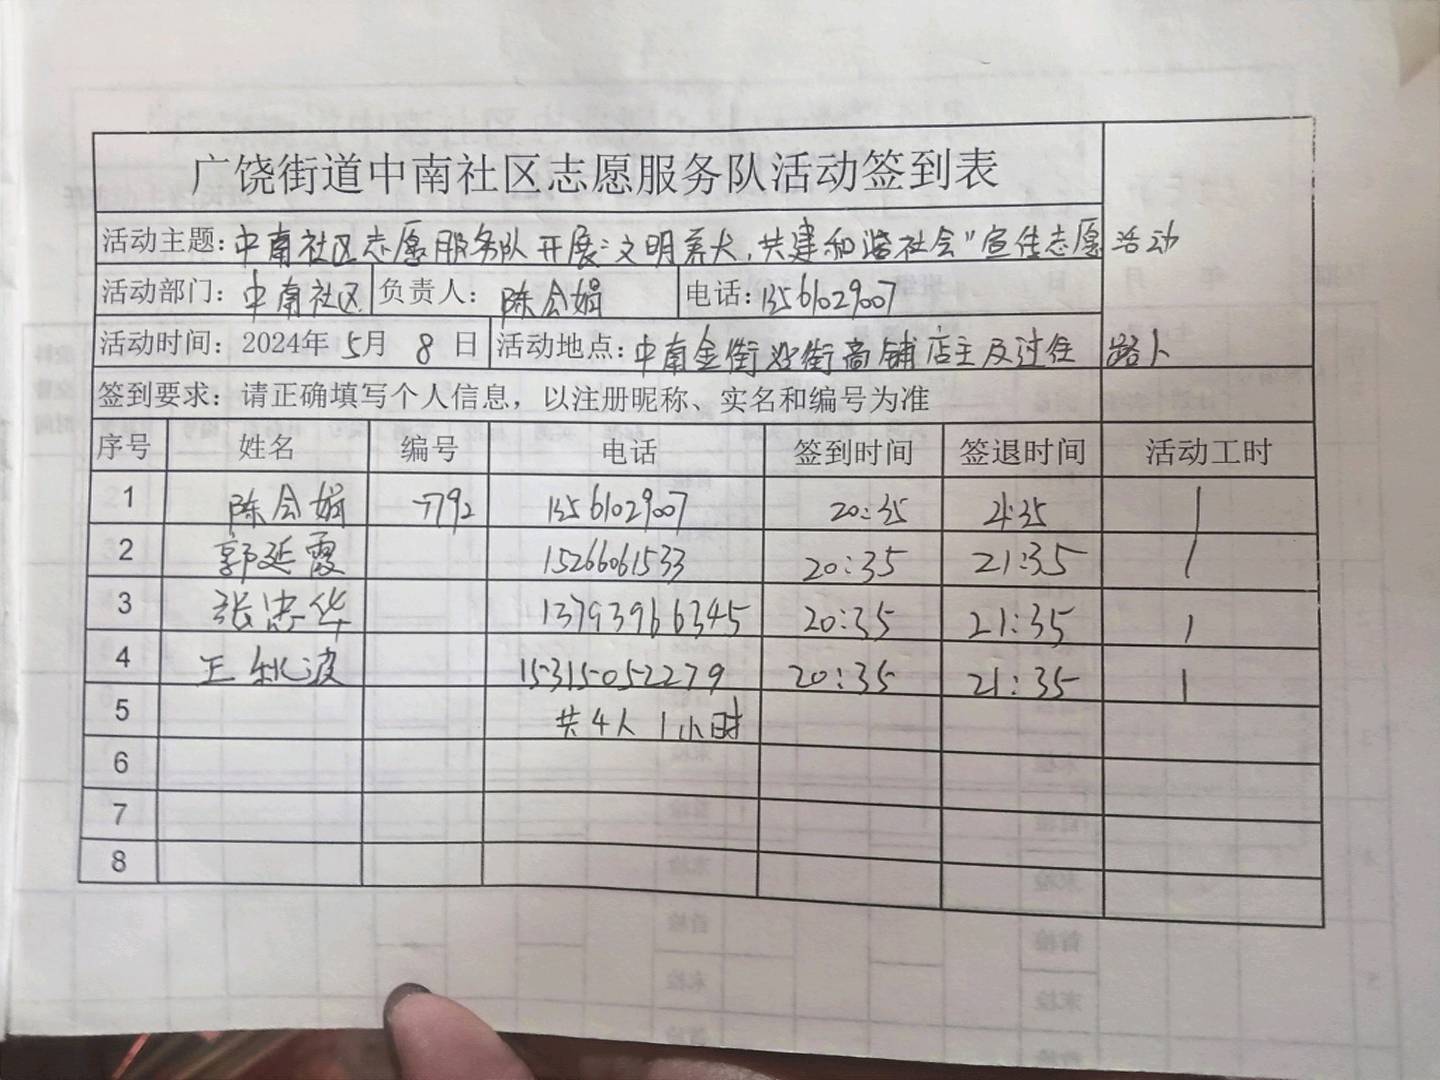 广饶街道中南社区志愿服务队活动签到表
活动主题：中南社区志愿服务队开展"文明养犬，共建和谐社会"宣传志愿活动
活动部门：中南社区 负责人：陈会娟 电话：13561029007
活动时间：2024年5月8日 活动地点：中南金街沿街商铺店主及过往路人
签到要求：请正确填写个人信息，以注册昵称、实名和编号为准
序号 姓名 编号 电话 签到时间 签退时间 活动工时
1 陈会娟 -7792 13561029007 20:35 21:35 1
2 郭延霞 15266061533 20:35 21:35 1
3 张忠华 13793966345 20:35 21:35 1
4 王秋波 15315052279 20:35 21:35 1
5 共4人 1小时
6
7
8